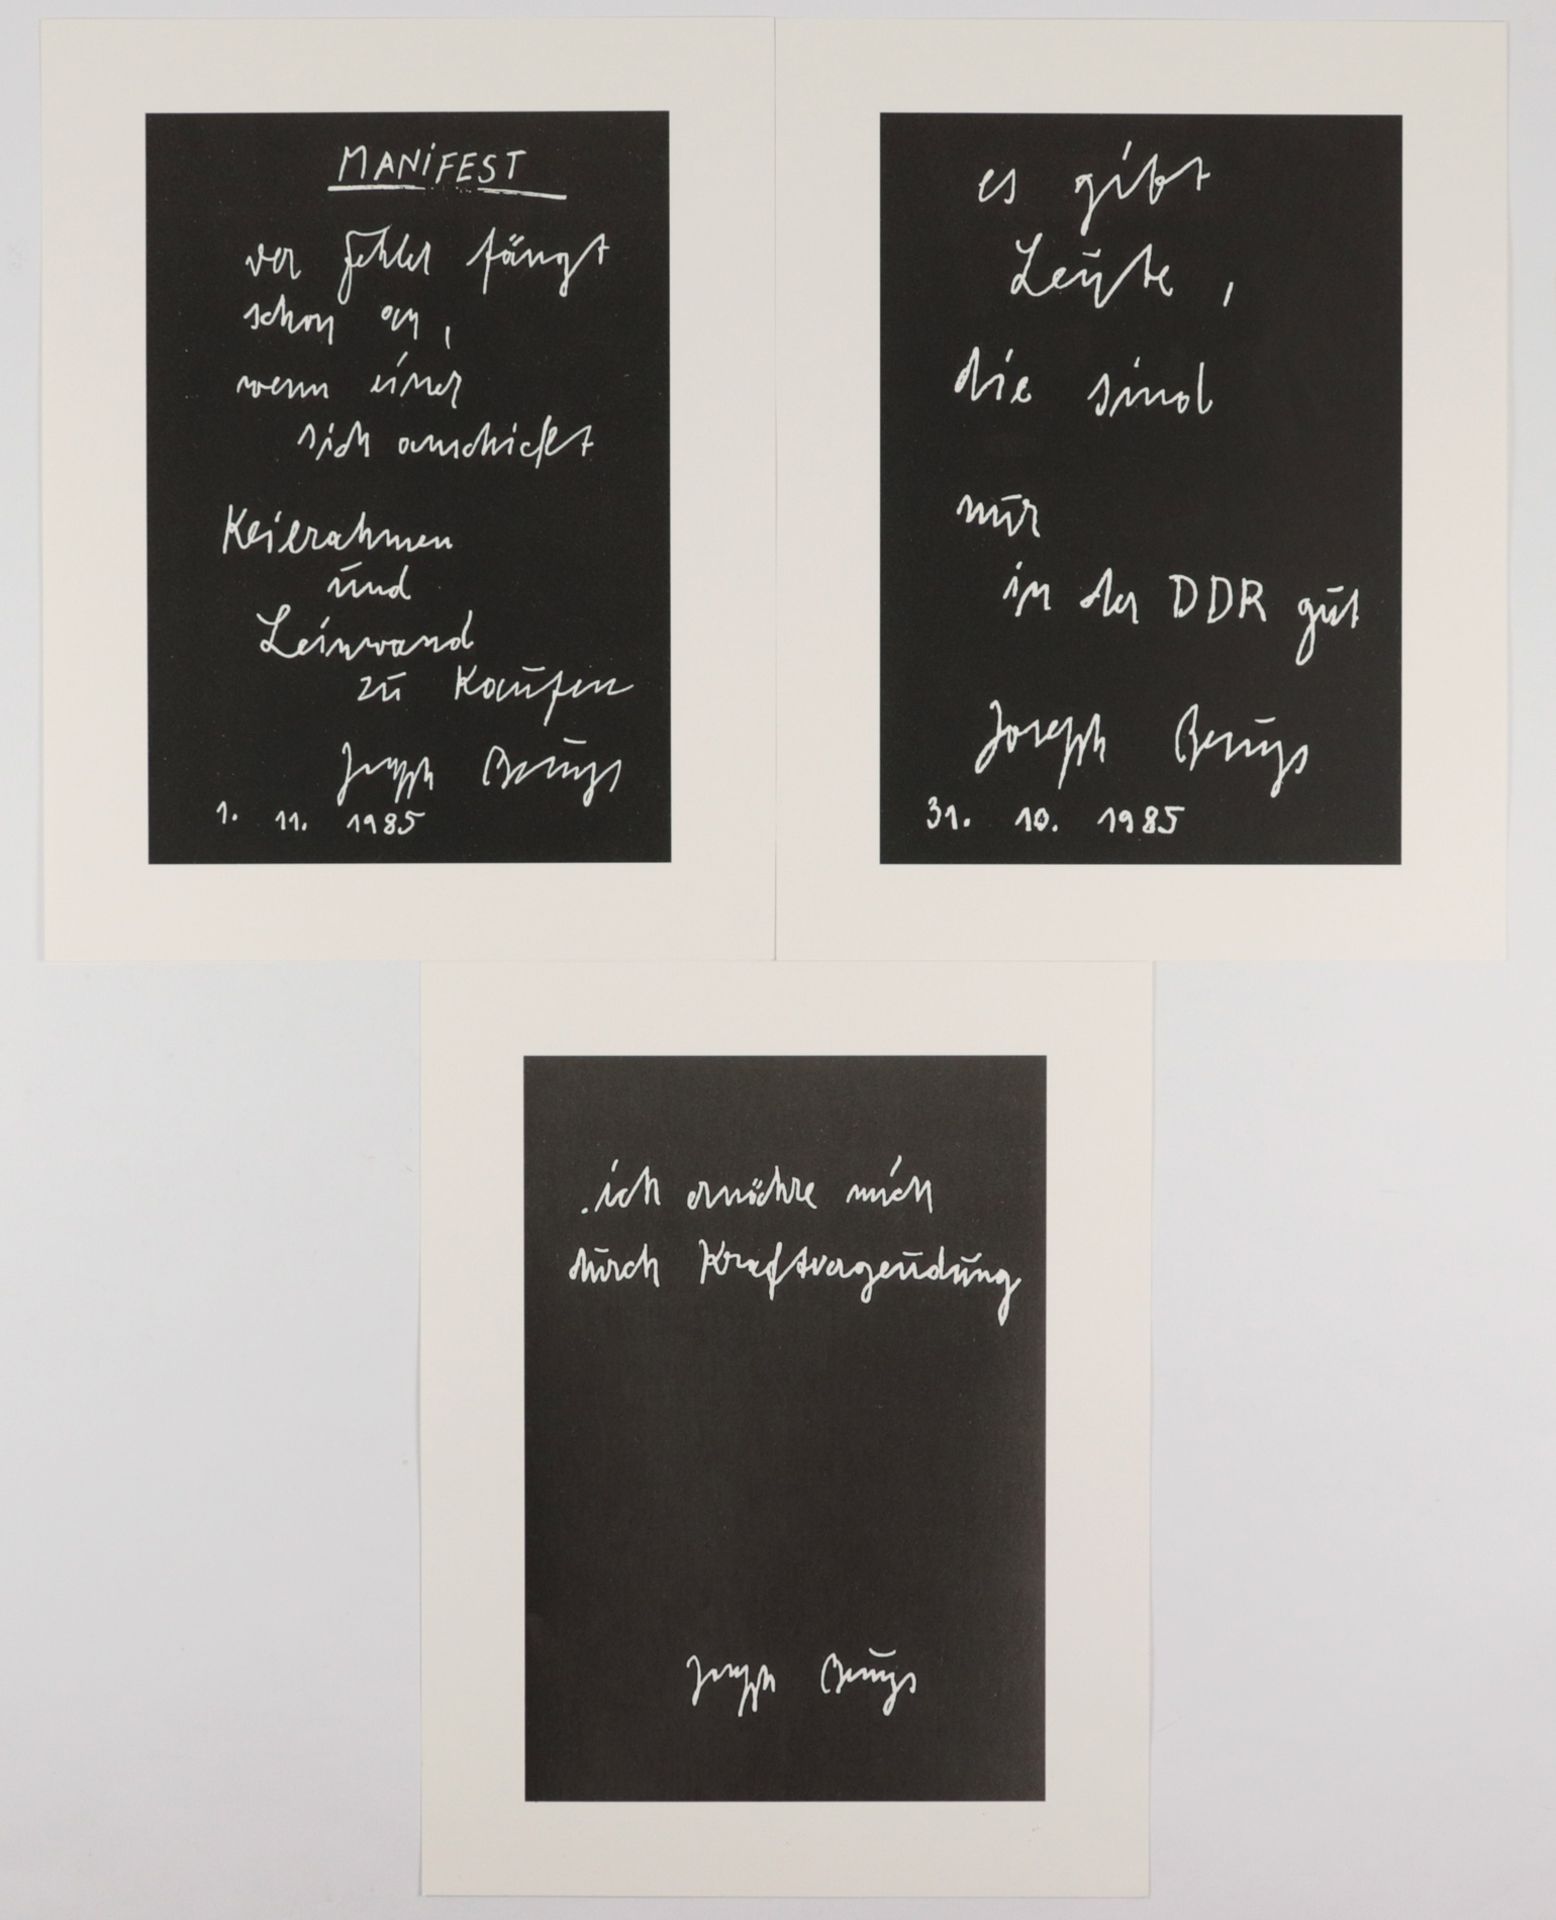 MANiFEST
der Fehler fängt
schon an,
wenn einer
sich anschickt
Keilrahmen
und
Leinwand
zu Kaufen
Joseph Beuys
1. 11. 1985
es gibt
Leute,
die sind
nur
in der DDR gut
Joseph Beuys
31. 10. 1985
ich ernähre mich
durch Kraftvergeudung
Joseph Beuys